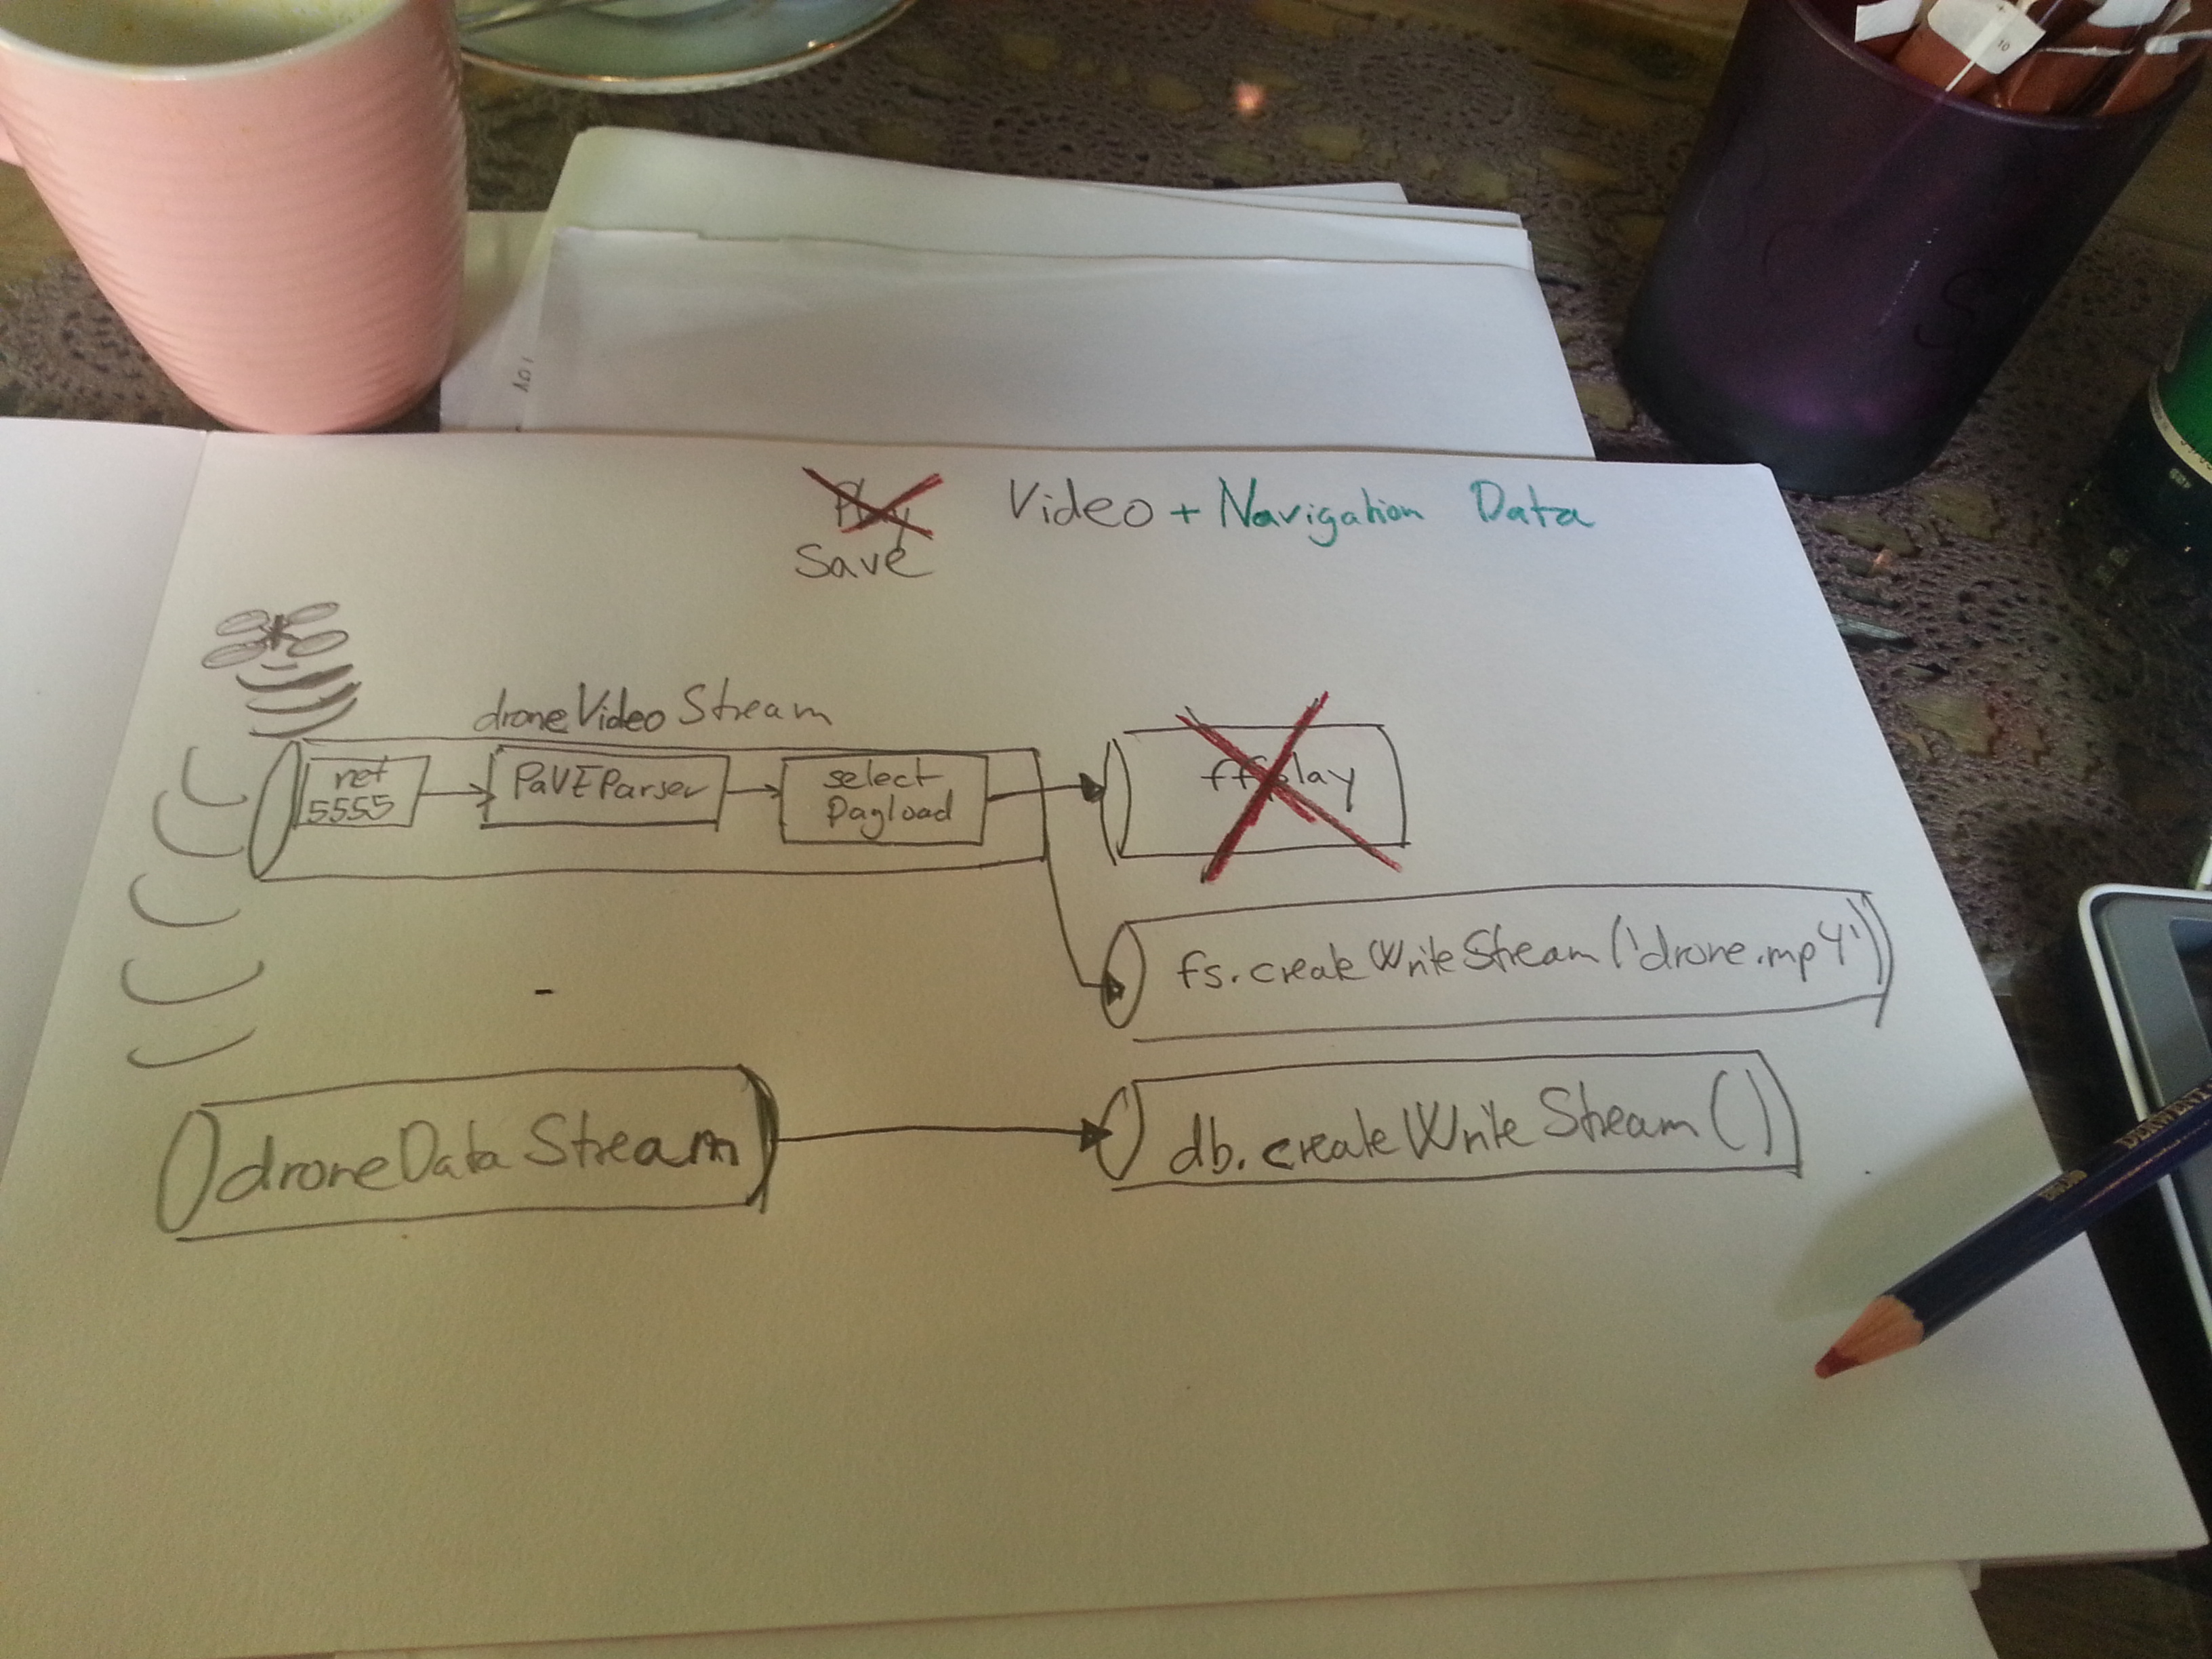 Play Video + Navigation Data
Save
droneVideoStream
net
5555
PaVEParser
select
Payload
ffplay
fs.createWriteStream('drone.mp4')
droneDataStream
db.createWriteStream()
DERWENT
10